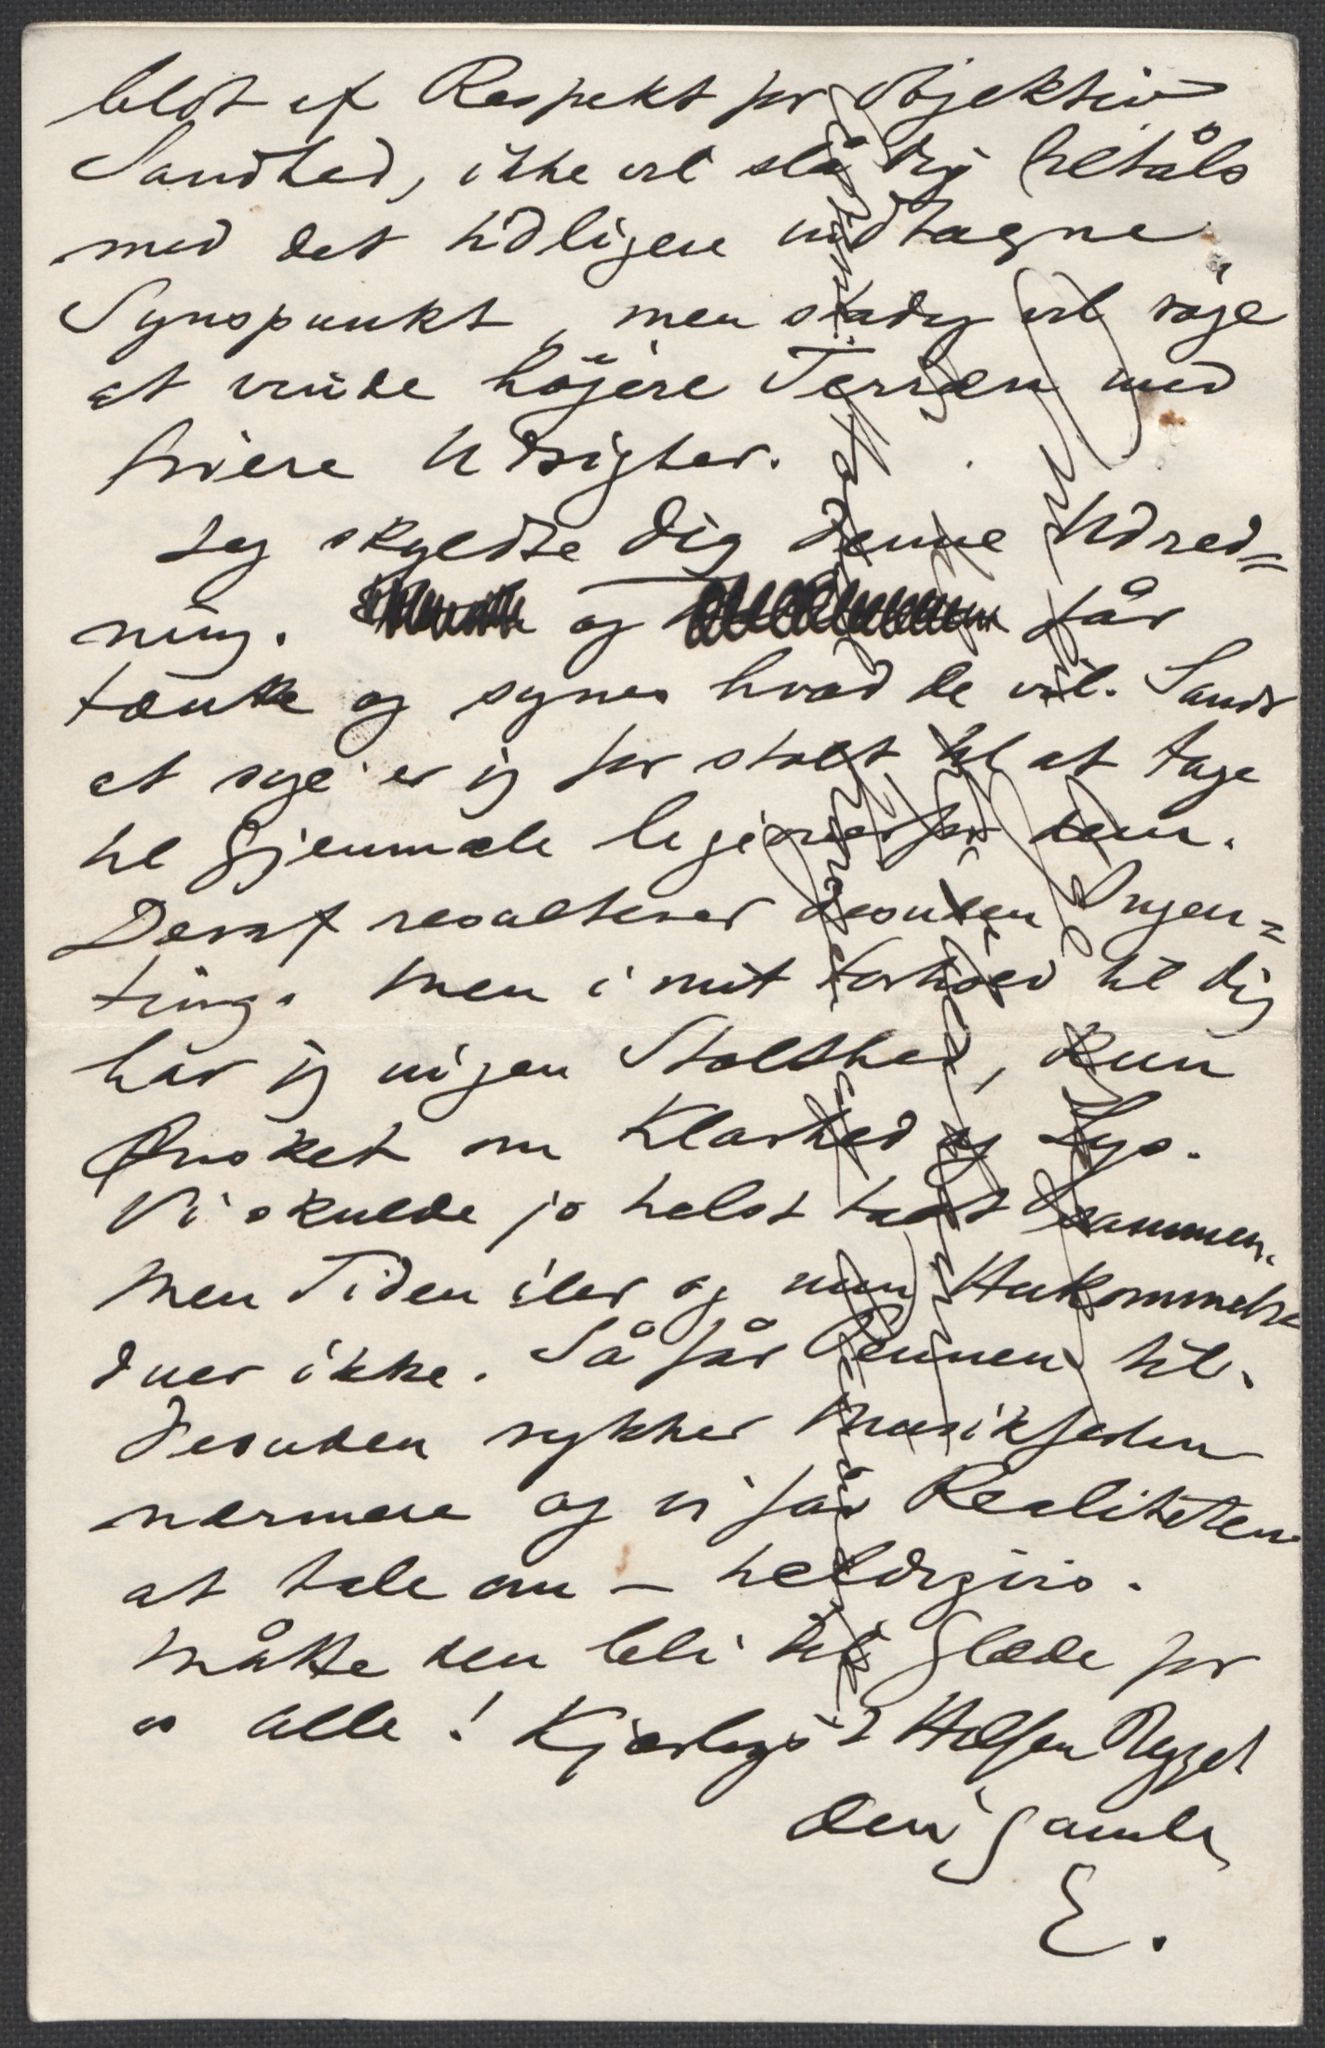 blot af Respekt for objektiv
Sandhed, ikke vil slå dig tiltåls
med det tidligere indtagne
Synspunkt, men stadig vil söge
at vinde höjere Terræn med
friere Udsigter.
Jeg skyldte dig denne Udred=
ning. og får
tænke og synes hvad de vil. Sandt
at sige er jeg for stolt til at tage
til Gjenmæle ligeoverfor dem.
Deraf resulterer desuden Ingen=
ting. Men i mit Forhold til dig
har jeg ingen Stolthed, kun
Ønsket om Klarhed og Lys.
Vi skulde jo helst talt sammen.
Men Tiden iler og min Hukommelse
duer ikke. Så får Pennen til.
Desuden rykker Musikfesten
nærmere og vi får Realiteten
at tale om – heldigvis.
Måtte den bli til Glæde for
os alle! Kjærligst Hilsen
den gamle
E.